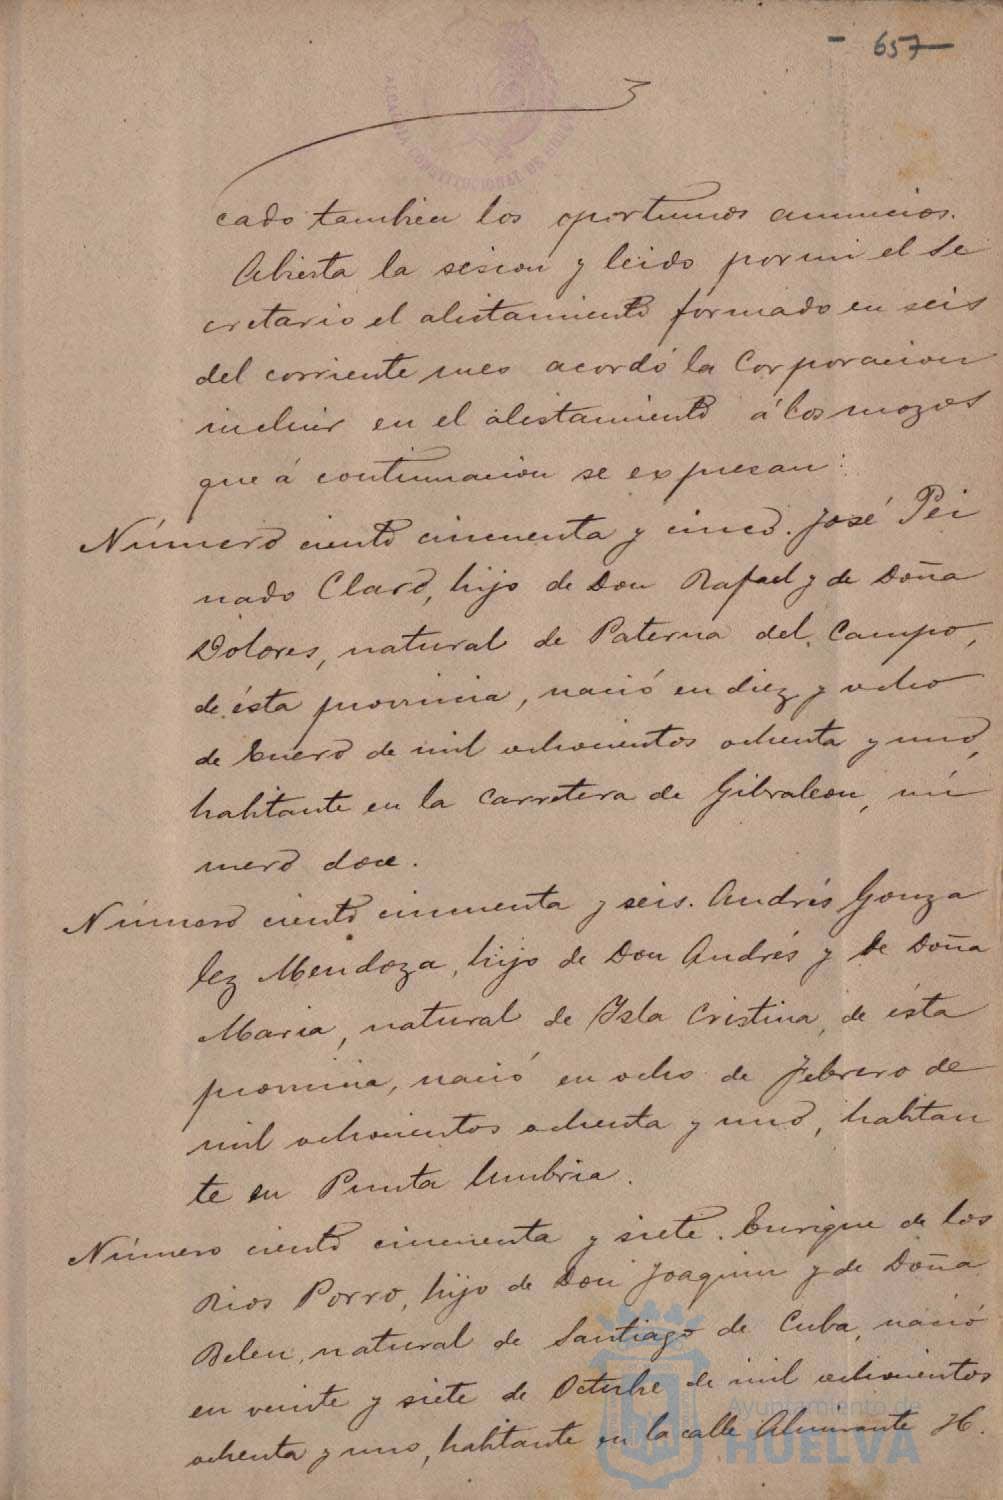 - 657 -
ALCALDIA CONSTITUCIONAL DE HUELVA
cado tambien los oportunos anuncios.
Abierta la sesion y leido por mi el Se
cretario el alistamiento formado en seis
del corriente mes acordó la Corporacion
incluir en el alistamiento á los mozos
que á continuacion se expresan:
Número ciento cincuenta y cinco. José Pei
nado Claro, hijo de Don Rafael y de Doña
Dolores, natural de Paterna del Campo,
de ésta provincia, nació en diez y ocho
de Enero de mil ochocientos ochenta y uno,
habitante en la carretera de Gibraleon, nú
mero doce.
Número ciento cincuenta y seis. Andrés Gonza
lez Mendoza, hijo de Don Andrés y de Doña
Maria, natural de Isla Cristina, de ésta
provincia, nació en ocho de Febrero de
mil ochocientos ochenta y uno, habitan
te en Punta Umbria.
Número ciento cincuenta y siete. Enrique de los
Rios Porro, hijo de Don Joaquin y de Doña
Belen, natural de Santiago de Cuba, nació
en veinte y siete de Octubre de mil ochocientos
ochenta y uno, habitante en la calle Almirante H.
Ayuntamiento de
HUELVA